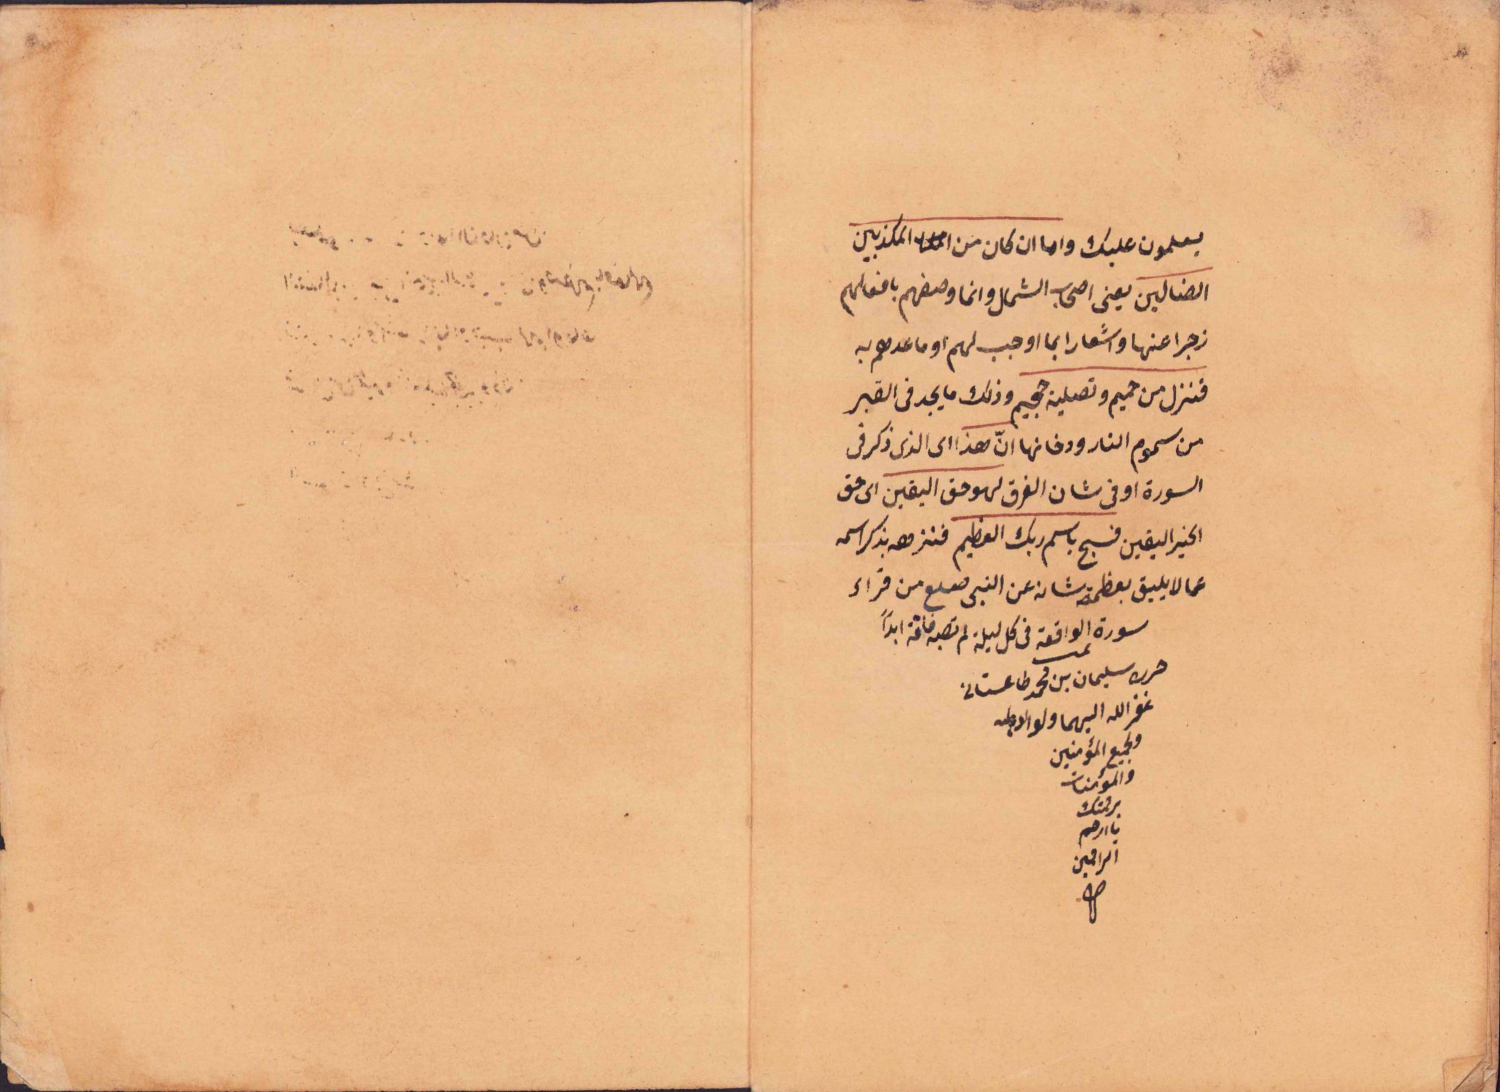 يسلمون عليك واما ان كان من المكذبين
الضالين يعنى اصحاب الشمال وانما وصفهم بافعالهم
زجرا عنها واشعارا بما اوجب لهم ما اوعدهم به
فنزل من حميم وتصلية جحيم وذلك ما يجد فى القبر
من سموم النار ودخانها انّ هذا اى الذى ذكر فى
السورة او فى شان الفرق لهو حق اليقين اى حق
الخبر اليقين فسبح باسم ربك العظيم فنزهه بذكر اسمه
عما لا يليق بعظمة شانه عن النبى صلعم من قراء
سورة الواقعة فى كل ليلة لم تصبه فاقة ابدًا
تمت
حرره سليمان بن محمد
غفر الله اليهما ولوالديه
ولجميع المؤمنين
والمؤمنات
برحمتك
يا ارحم
الراحمين